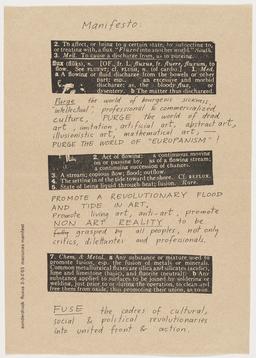 Manifesto:
2. To affect, or bring to a certain state, by subjecting to, or treating with, a flux. "Fluxed into another world." South.
3. Med. To cause a discharge from, as in purging.
flux (flŭks), n. [OF., fr. L. fluxus, fr. fluere, fluxum, to flow. See FLUENT; cf. FLUSH, n. (of cards).] 1. Med.
a A flowing or fluid discharge from the bowels or other
part; esp., an excessive and morbid
discharge; as, the bloody flux, or
dysentery. b The matter thus discharged.
Purge the world of bourgeois sickness,
"intellectual", professional & commercialized
culture, PURGE the world of dead
art, imitation, artificial art, abstract art,
illusionistic art, mathematical art, —
PURGE THE WORLD OF "EUROPANISM"!
2. Act of flowing: a continuous moving
on or passing by, as of a flowing stream;
a continuing succession of changes.
3. A stream; copious flow; flood; outflow.
4. The setting in of the tide toward the shore. Cf. REFLUX.
5. State of being liquid through heat; fusion. Rare.
PROMOTE A REVOLUTIONARY FLOOD
AND TIDE IN ART,
Promote living art, anti-art, promote
NON ART REALITY to be
grasped by all peoples, not only
critics, dilettantes and professionals.
7. Chem. & Metal. a Any substance or mixture used to
promote fusion, esp. the fusion of metals or minerals.
Common metallurgical fluxes are silica and silicates (acidic),
lime and limestone (basic), and fluorite (neutral). b Any
substance applied to surfaces to be joined by soldering or
welding, just prior to or during the operation, to clean and
free them from oxide, thus promoting their union, as rosin.
FUSE the cadres of cultural,
social & political revolutionaries
into united front & action.